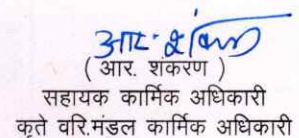 आर. शंकरण
( आर. शंकरण )
सहायक कार्मिक अधिकारी
कृते वरि.मंडल कार्मिक अधिकारी